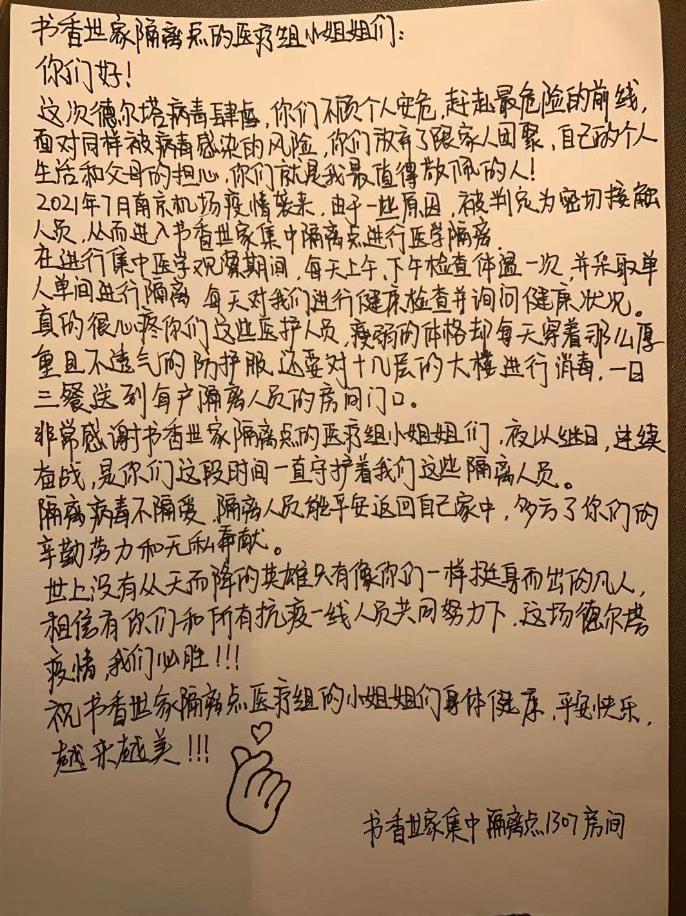 书香世家隔离点的医疗组小姐姐们：
你们好！
这次德尔塔病毒肆虐，你们不顾个人安危，赶赴最危险的前线，
面对同样被病毒感染的风险，你们放弃了跟家人团聚，自己的个人
生活和父母的担心，你们就是我最值得敬佩的人！
2021年7月南京机场疫情袭来，由于一些原因，被判定为密切接触
人员，从而进入书香世家集中隔离点进行医学隔离，
在进行集中医学观察期间，每天上午、下午检查体温一次，并采取单
人单间进行隔离，每天对我们进行健康检查并询问健康状况。
真的很心疼你们这些医护人员，瘦弱的体格却每天穿着那么厚
重且不透气的防护服，还要对十几层的大楼进行消毒，一日
三餐送到每户隔离人员的房间门口。
非常感谢书香世家隔离点的医疗组小姐姐们，夜以继日，连续
奋战，是你们这段时间一直守护着我们这些隔离人员。
隔离病毒不隔爱，隔离人员能平安返回自己家中，多亏了你们的
辛勤劳力和无私奉献。
世上没有从天而降的英雄只有像你们一样挺身而出的凡人，
相信有你们和所有抗疫一线人员共同努力下，这场德尔塔
疫情，我们必胜！！！
祝书香世家隔离点医疗组的小姐姐们身体健康，平安快乐，
越来越美！！！
书香世家集中隔离点1307房间